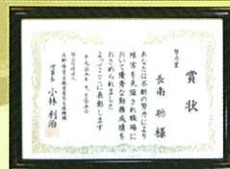 賞状
努力賞
長南 聡 様
あなたは不断の努力により
障害を克服され職場に
おいて優秀な勤務成績を
おさめられました
よってここに表彰します
理事長 小林 利治